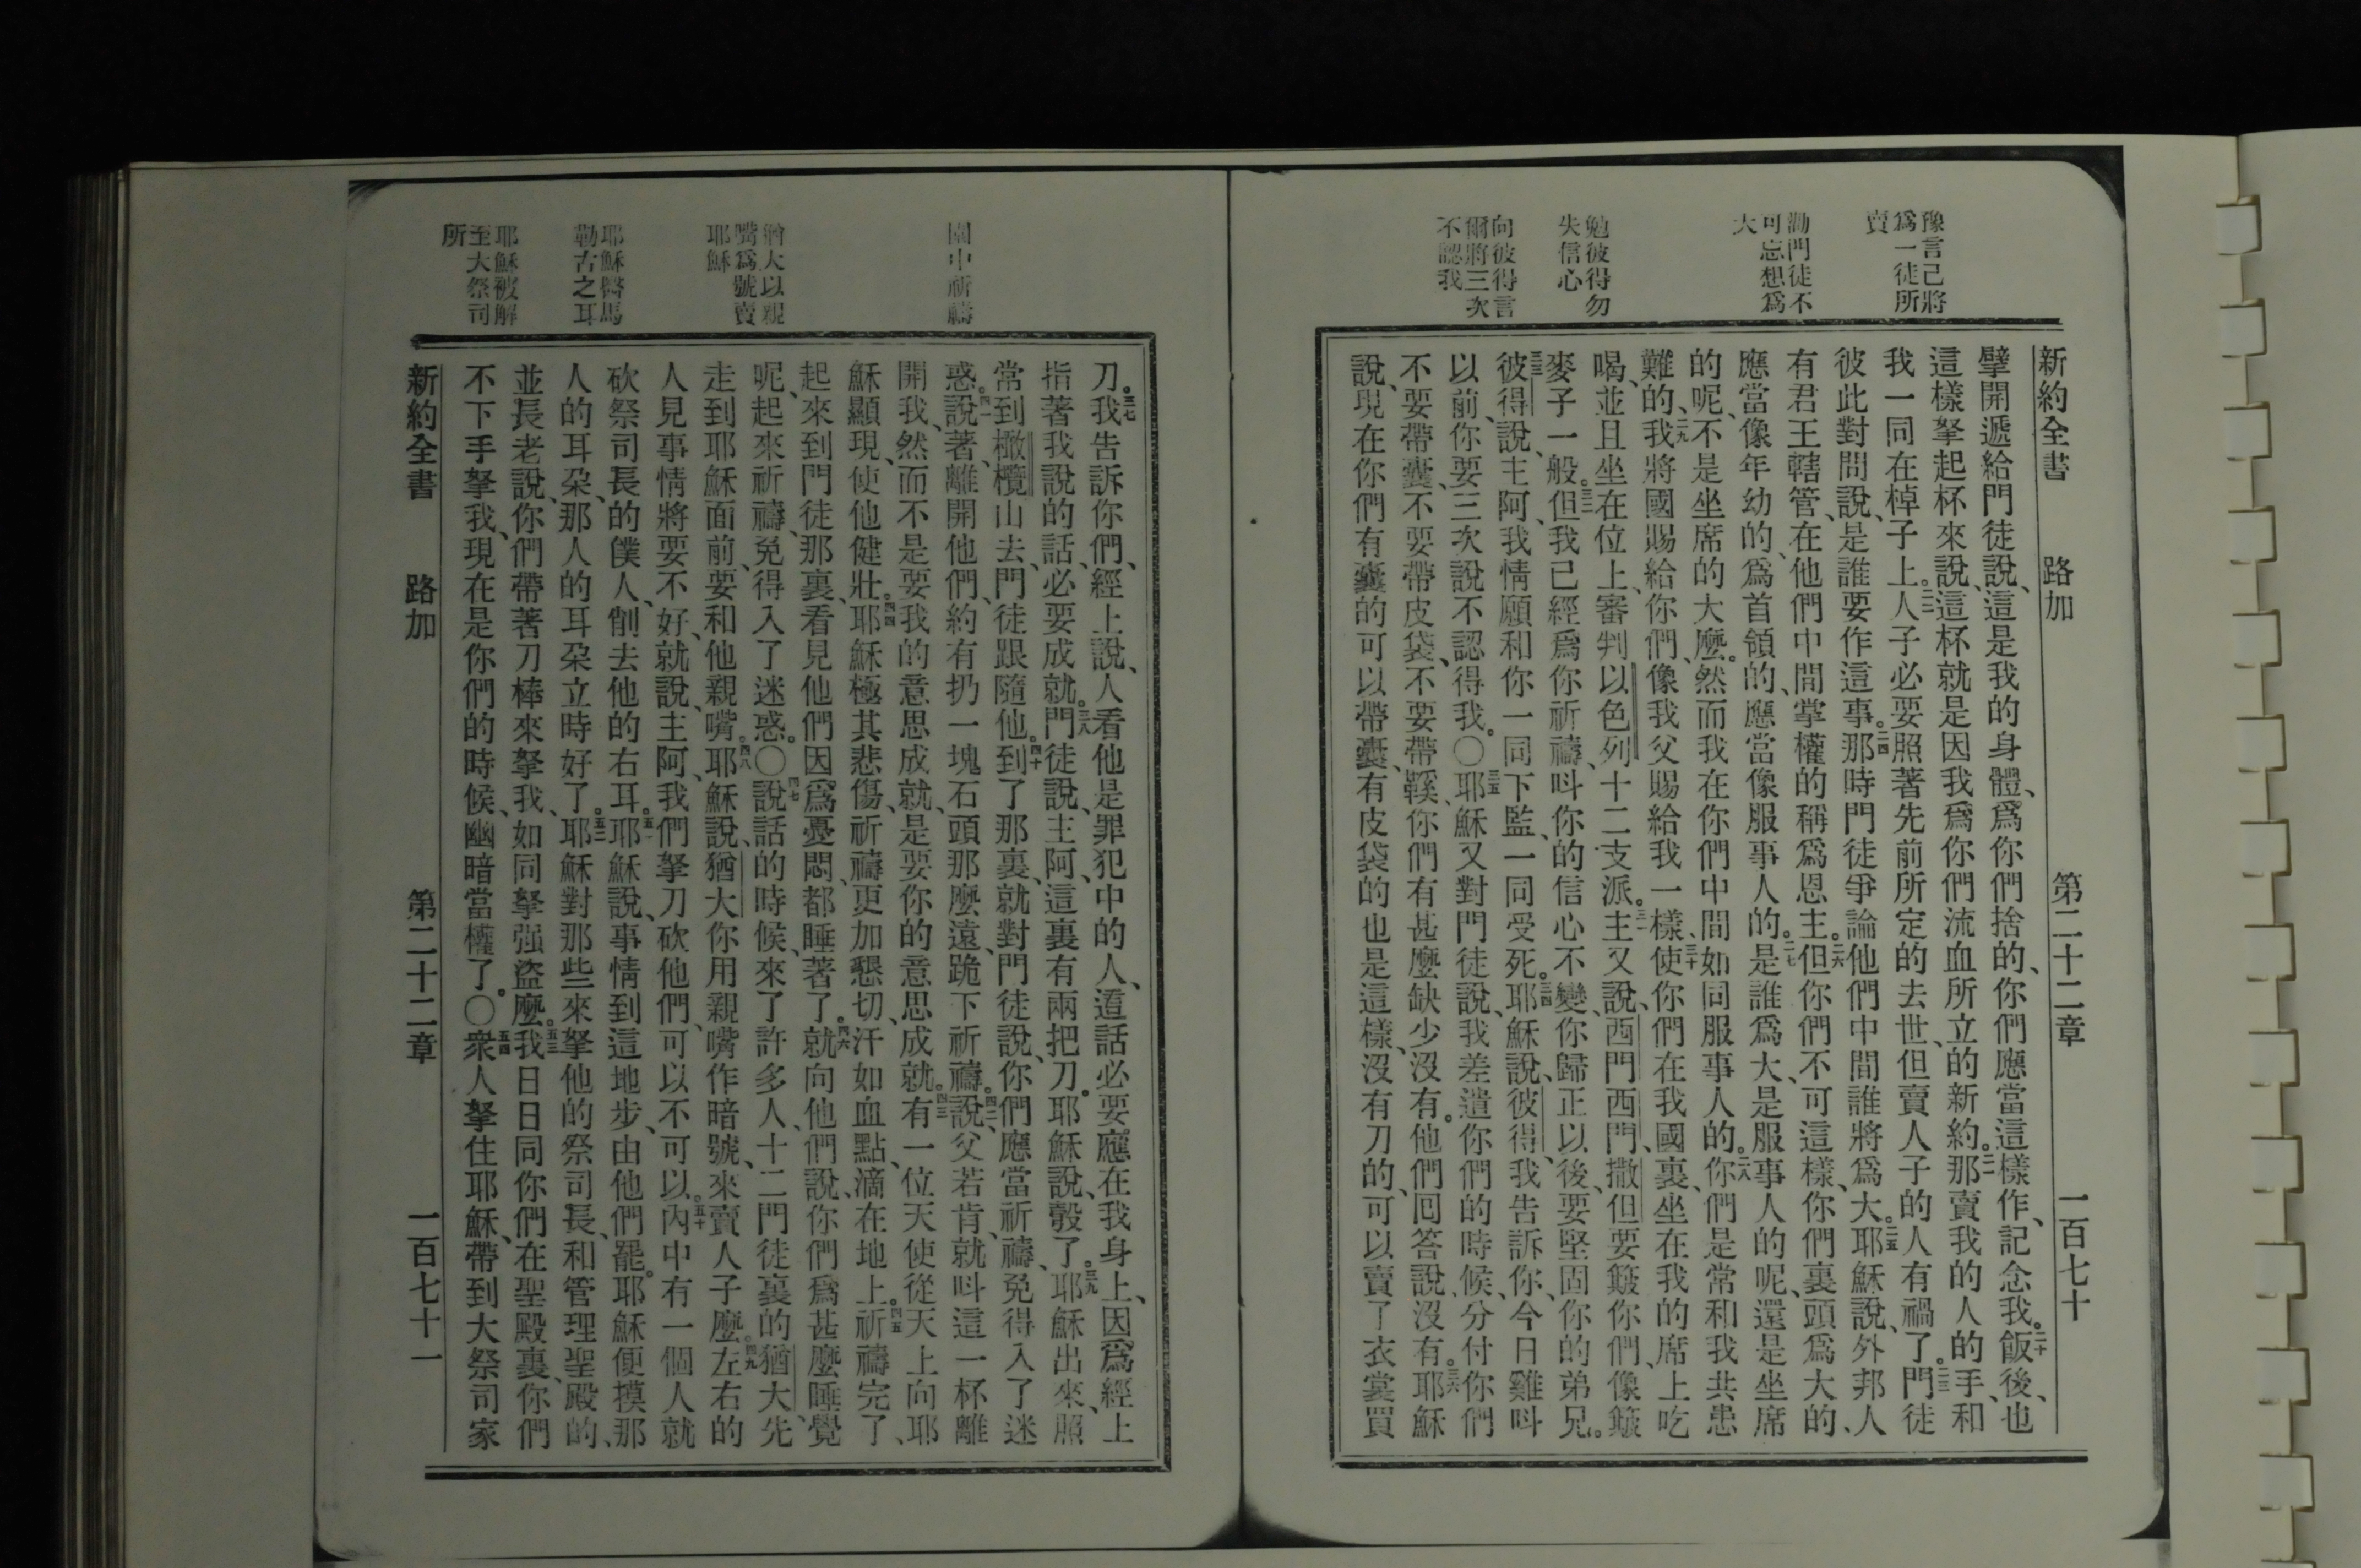 豫言己將
爲一徒所
賣
勸門徒不
可忘想爲
大
勉彼得勿
失信心
向彼得言
爾將三次
不認我
新約全書 路加 第二十二章 一百七十
擘開遞給門徒說、這是我的身體、爲你們捨的、你們應當這樣作、記念我。二十飯後、也
這樣拏起杯來說、這杯就是因我爲你們流血所立的新約。二一那賣我的人的手、和
我一同在棹子上。二二人子必要照著先前所定的去世、但賣人子的人有禍了。二三門徒
彼此對問說、是誰要作這事。二四那時門徒爭論他們中間誰將爲大。二五耶穌說、外邦人
有君王轄管、在他們中間掌權的稱爲恩主。二六但你們不可這樣、你們裏頭爲大的、
應當像年幼的、爲首領的、應當像服事人的。二七是誰爲大、是服事人的呢、還是坐席
的呢、不是坐席的大麽。然而我在你們中間如同服事人的。二八你們是常和我共患
難的、二九我將國賜給你們、像我父賜給我一樣、三十使你們在我國裏、坐在我的席上吃
喝、並且坐在位上、審判以色列十二支派。三一主又說、西門西門、撒但要簸你們、像簸
麥子一般。三二但我已經爲你祈禱、呌你的信心不變、你歸正以後、要堅固你的弟兄。
三三彼得說、主阿、我情願和你一同下監、一同受死。三四耶穌說、彼得、我告訴你、今日雞呌
以前、你要三次說不認得我。〇三五耶穌又對門徒說、我差遣你們的時候、分付你們
不要帶囊、不要帶皮袋、不要帶鞵、你們有甚麽缺少沒有。他們回答說、沒有。三六耶穌
說、現在你們有囊的可以帶囊、有皮袋的也是這樣、沒有刀的、可以賣了衣裳買
園中祈禱
猶大以親
嘴爲號賣
耶穌
耶穌醫馬
勒古之耳
耶穌被解
至大祭司
所
刀。三七我告訴你們、經上說、人看他是罪犯中的人、這話必要應在我身上、因爲經上
指著我說的話、必要成就。三八門徒說、主阿、這裏有兩把刀。耶穌說、彀了。三九耶穌出來、照
常到橄欖山去、門徒跟隨他。四十到了那裏、就對門徒說、你們應當祈禱、免得入了迷
惑。四一說著、離開他們、約有扔一塊石頭那麽遠、跪下祈禱。四二說、父若肯、就呌這一杯離
開我、然而不是要我的意思成就、是要你的意思成就。四三有一位天使從天上向耶
穌顯現、使他健壯。四四耶穌極其悲傷、祈禱更加懇切、汗如血點、滴在地上。四五祈禱完了、
起來到門徒那裏、看見他們因爲憂悶、都睡著了。四六就向他們說、你們爲甚麽睡覺
呢、起來祈禱、免得入了迷惑。〇四七說話的時候、來了許多人、十二門徒裏的猶大、先
走到耶穌面前、要和他親嘴。四八耶穌說、猶大你用親嘴作暗號、來賣人子麽。四九左右的
人見事情將要不好、就說、主阿、我們拏刀砍他們、可以不可以。五十內中有一個人就
砍祭司長的僕人、削去他的右耳。五一耶穌說、事情到這地步、由他們罷。耶穌便摸那
人的耳朶、那人的耳朶立時好了。五二耶穌對那些來拏他的祭司長、和管理聖殿的、
並長老說、你們帶著刀棒來拏我、如同拏强盜麽。五三我日日同你們在聖殿裏、你們
不下手拏我、現在是你們的時候、幽暗當權了。〇五四衆人拏住耶穌、帶到大祭司家
新約全書 路加 第二十二章 一百七十一